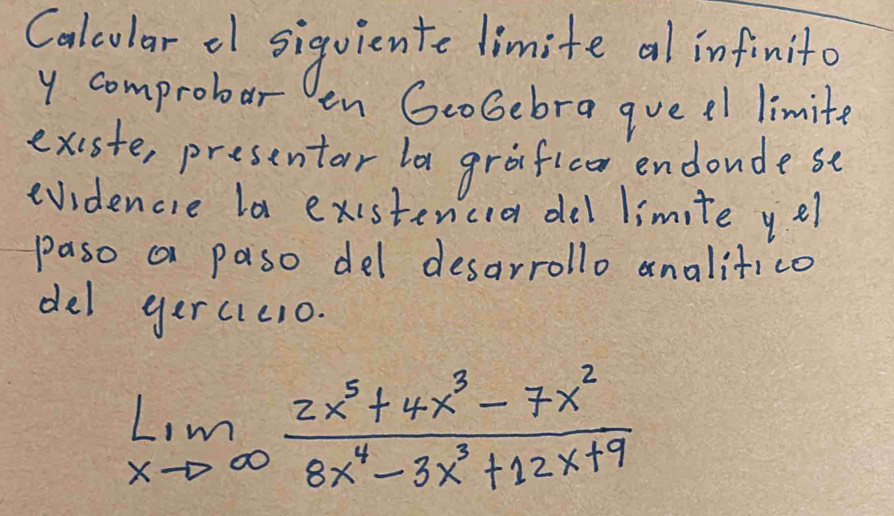 Calcular el siguiente límite al infinito
y comprobar en GeoGebra que el límite
existe, presentar la gráfica endonde se
evidencie la existencia del límite y el
paso a paso del desarrollo analítico
del ejercicio.
Lim x→∞ (2x⁵ + 4x³ - 7x²) / (8x⁴ - 3x³ + 12x + 9)